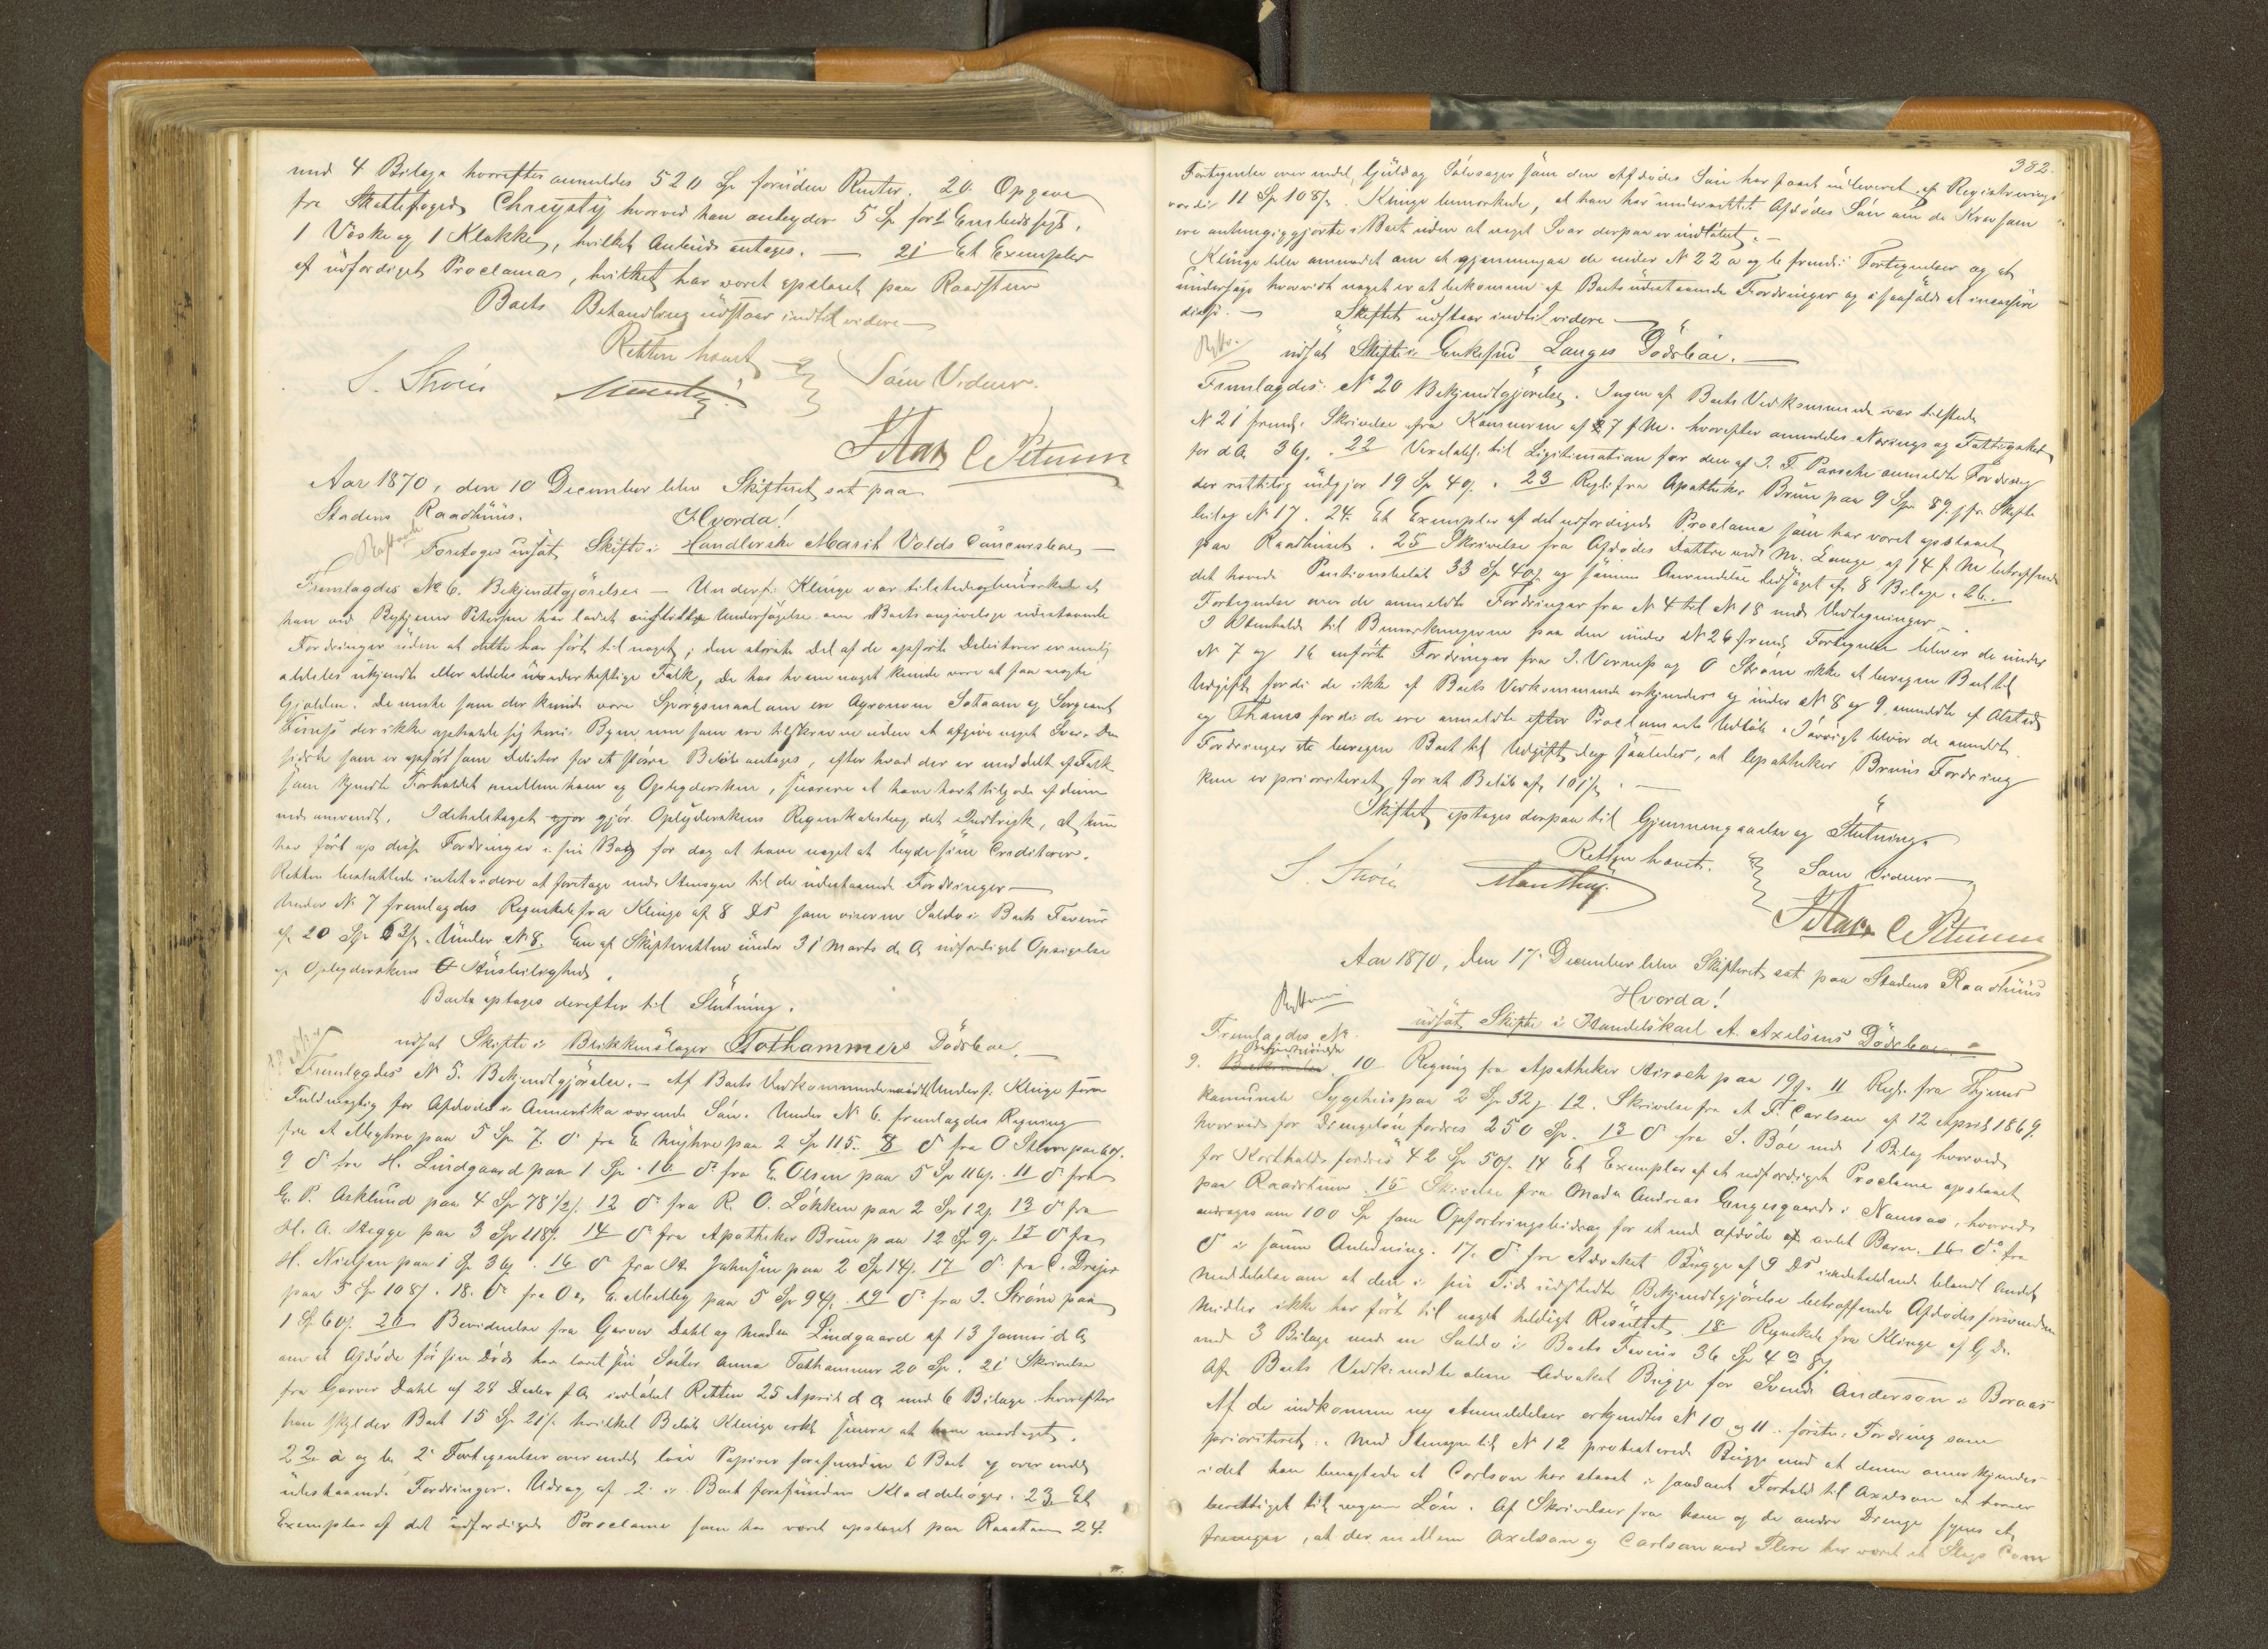 med 4 Bilage hvorefter anmeldes 520 Sp foruden Renter. 20. Opgave
fra Skattefoged Chrysty hvorved han anbyder 5 Sp for
1 Væske og 1 Klokke, hvilket Anbud antages. — 21 Et Exemplar
af udfærdiget Proclama, hvilket har været opslaaet paa Raadstuen
Boets Behandling udstaar indtil videre —
Retten hævet
S. Strøm Som Vidner.
C Petersen
Aar 1870, den 10 December blev Skifteret sat paa
Stadens Raadhuus.
Hvorda!
Foretoges udsat Skifte i Handlerske Marit Volds Concursboe —
Fremlagdes No 6. Bekjendtgjørelse — Underf: Klinge var tilstede og bemærkede at
han ved Petersen har ladet anstille Undersøgelse om Boets angivelige udestaaende
Fordringer uden at dette har ført til noget; den største Del af de opførte Debitorer er
aldeles ukjendte eller aldeles uvederheftige Folk, de hos hvem noget kunde være at faa nægte
Gjælden. De eneste som der kunde være Spørgsmaal om ere Agronom og Sergeant
der ikke opholde sig her i Byen, men som ere tilskrevne uden at afgive noget Svar. Den
sidste som er opført som Debitor for et større Beløb antages, efter hvad der er meddelt af Folk
som kjendte Forholdet mellem ham og Opbyderesken, snarere at have havt tilgode af denne
end omvendt. I det Hele taget gjør Opbyderskens Regnskabsbog det Indtryk, at hun
har ført op disse Fordringer i sin Bog for dog at have noget at byde sine Creditorer.
Retten besluttede intet videre at foretage med Hensyn til de udestaaende Fordringer —
Under No 7 fremlagdes Regnskab fra Klinge af 8 Ds som viser en Saldo i Boets Faveur
af 20 Sp 63 s. Under No 8. En af Skifteretten under 31 Marts d. A. udfærdiget Opsigelse
af Opbyderskens Huusleilighed.
Boet optages derefter til Slutning.
udsat Skifte i Blikkenslager Tothammers Dødsboe. —
Fremlagdes No 5. Bekjendtgjørelse. — Af Boets Vedkommende mødte Underf. Klinge som
Fuldmægtig for Afdødes i Amerika værende Søn. Under No 6. fremlagdes Regning
fra paa 5 Sp 7. do fra E. paa 2 Sp 115. 8 do fra O paa 60 s.
9 do fra H. Lindgaard paa 1 Sp. 10 do fra E. Olsen paa 5 Sp 116 s. 11 do fra
E. P. Asklund paa 4 Sp 78 1/2 s. 12 do fra R. O. Løkken paa 2 Sp 12 s. 13 do fra
H. A. Hegge paa 3 Sp 118 s. 14 do fra Apotheker Bruun paa 12 Sp 9 s. 15 do fra
H. Nielsen paa 1 Sp 36 s. 16 do fra Johnsen paa 2 Sp 14 s. 17 do fra C. Drejer
paa 5 Sp 108 s. 18. do fra paa 5 Sp 94 s. 19 do fra I. Strøm paa
1 Sp 60 s. 20 Bevidnelse fra Garver Dahl og Madam Lindgaard af 13 Januar d. A.
om at Afdøde før sin Død har laant sin Søster Anna Tothammer 20 Sp. 21 Skrivelse
fra Garver Dahl af 28 Decbr f. A. indløbet Retten 25 April d. A. med 6 Bilage hvorefter
han skylder Boet 15 Sp 21 s. hvilket Beløb Klinge erkl. senere at have modtaget.
22. a og b. 2 Fortegnelser over endel løse Papirer forefundne i Boet og over endel
udestaaende Fordringer. Udrag af 2 i Boet forefundne Kladdebøger. 23 Et
Exemplar af det udfærdigede Proclama som har været opslaaet paa Raadstuen 24.
382.
Fortegnelse over endel Guld og Sølvsager som den Afdødes Søn har faaet udleveret af Registrerings
værdi 11 Sp 108 s. Klinge bemærkede, at han har underrettet Afdødes Søn om de Krav som
ere anhængiggjorte i Boet uden at noget Svar derpaa er indløbet. —
Klinge blev anmodet om at gjennemgaa de under No 22 a og b fremlagte Fortegnelser og at
undersøge hvorvidt noget er at bekomme af Boets udestaaende Fordringer og i saafald at incassere
disse. — Skiftet udstaar indtil videre —
udsat Skifte i Enkefru Langes Dødsboe. —
Fremlagdes: No 20 Bekjendtgjørelse. Ingen af Boets Vedkommende var tilstede
No 21 freml. Skrivelse fra Kæmneren af 27 f. M. hvorefter anmeldes Nærings og Fattigskat
for d. A. 36 s. 22 til Legitimation for den af I. F. Paasche anmeldte Fordring
der rettelig udgjør 19 Sp 40 s. 23 Regn. fra Apotheker Bruun paa 9 Sp 89 s. jfr. Skifte
bilag No 17. 24. Et Exemplar af det udfærdigede Proclama som har været opslaaet
paa Raadhuset. 25 Skrivelse fra Afdødes Datter M. Lange af 14 f. M. betræffende
det hævede Pensionsbeløb 33 Sp 40 s. og sammes Anvendelse ledsaget af 8 Bilage. 26.
Fortegnelse over de anmeldte Fordringer fra No 4 til No 18 med Vedtegninger. —
I Henhold til Bemærkningerne paa den under No 26 freml. Fortegnelse blev de under
No 7 og 16 anførte Fordringer fra I. og O Strøm ikke at beregne Boet til
Udgift fordi de ikke af Boets Vedkommende erkjendes og under No 8 og 9 anmeldte af Alstad
og Thams fordi de ere anmeldte efter Proclamaets Udløb. I øvrigt blev de anmeldte
Fordringer at beregne Boet til Udgift dog saaledes, at Apotheker Bruuns Fordring
kun er prioriteret for et Beløb af 101 s. —
Skiftet optages derpaa til Gjennemgaaelse og Slutning.
Retten hævet.
S. Strøm Som Vidner —
C Petersen
Aar 1870, den 17. December blev Skifteret sat paa Stadens Raadhuus
Hvorda!
udsat Skifte i Handelskarl A. Axelsens Dødsboe. —
Fremlagdes No
9. Bekjendtgjørelse. 10 Regning fra Apotheker Hirsch paa 19 s. 11 Regn. fra Thjems
kommunale Sygehuus paa 2 Sp 32 s. 12. Skrivelse fra A F. Carlsen af 12 April 1869.
hvorved for Drengeløn fordres 250 Sp. 13 do fra S. Boe med 1 Bilag hvorved
for Kosthold fordres 42 Sp 50 s. 14 Et Exemplar af et udfærdiget Proclama opslaaet
paa Raadstuen 15 Skrivelse fra Mads Andreas Engesgaard i Namsos, hvorved
andrages om 100 Sp som Opfostringsbidrag for et med afdøde avlet Barn. 16 do fra
do i samme Anledning. 17. do fra Advokat Bugge af 9 Ds indeholdende blandt Andet
Meddelelse om at den i sin Tid udstedte Bekjendtgjørelse betræffende Afdødes forsvundne
Midler ikke har ført til noget heldigt Resultat. 18 Regnskab fra Klinge af G. D.
med 3 Bilage med en Saldo i Boets Faveur 36 Sp 4 8 s.
Af Boets Vedk. mødte alene Advokat Bugge for Svend Anderson i Boraas
Af de indkomne ny Anmeldelser erkjendtes No 10 og 11. første Fordring som
prioriteret. Med Hensyn til No 12 protesterede Bugge mod at denne anerkjendes
idet han benægtede at Carlson har staaet i saadant Forhold til Axelson at han er
berettiget til nogen Løn. Af Skrivelser fra ham og de andre Drenge synes at
fremgaa, at der mellem Axelson og Carlson med Flere har været et Slags Com